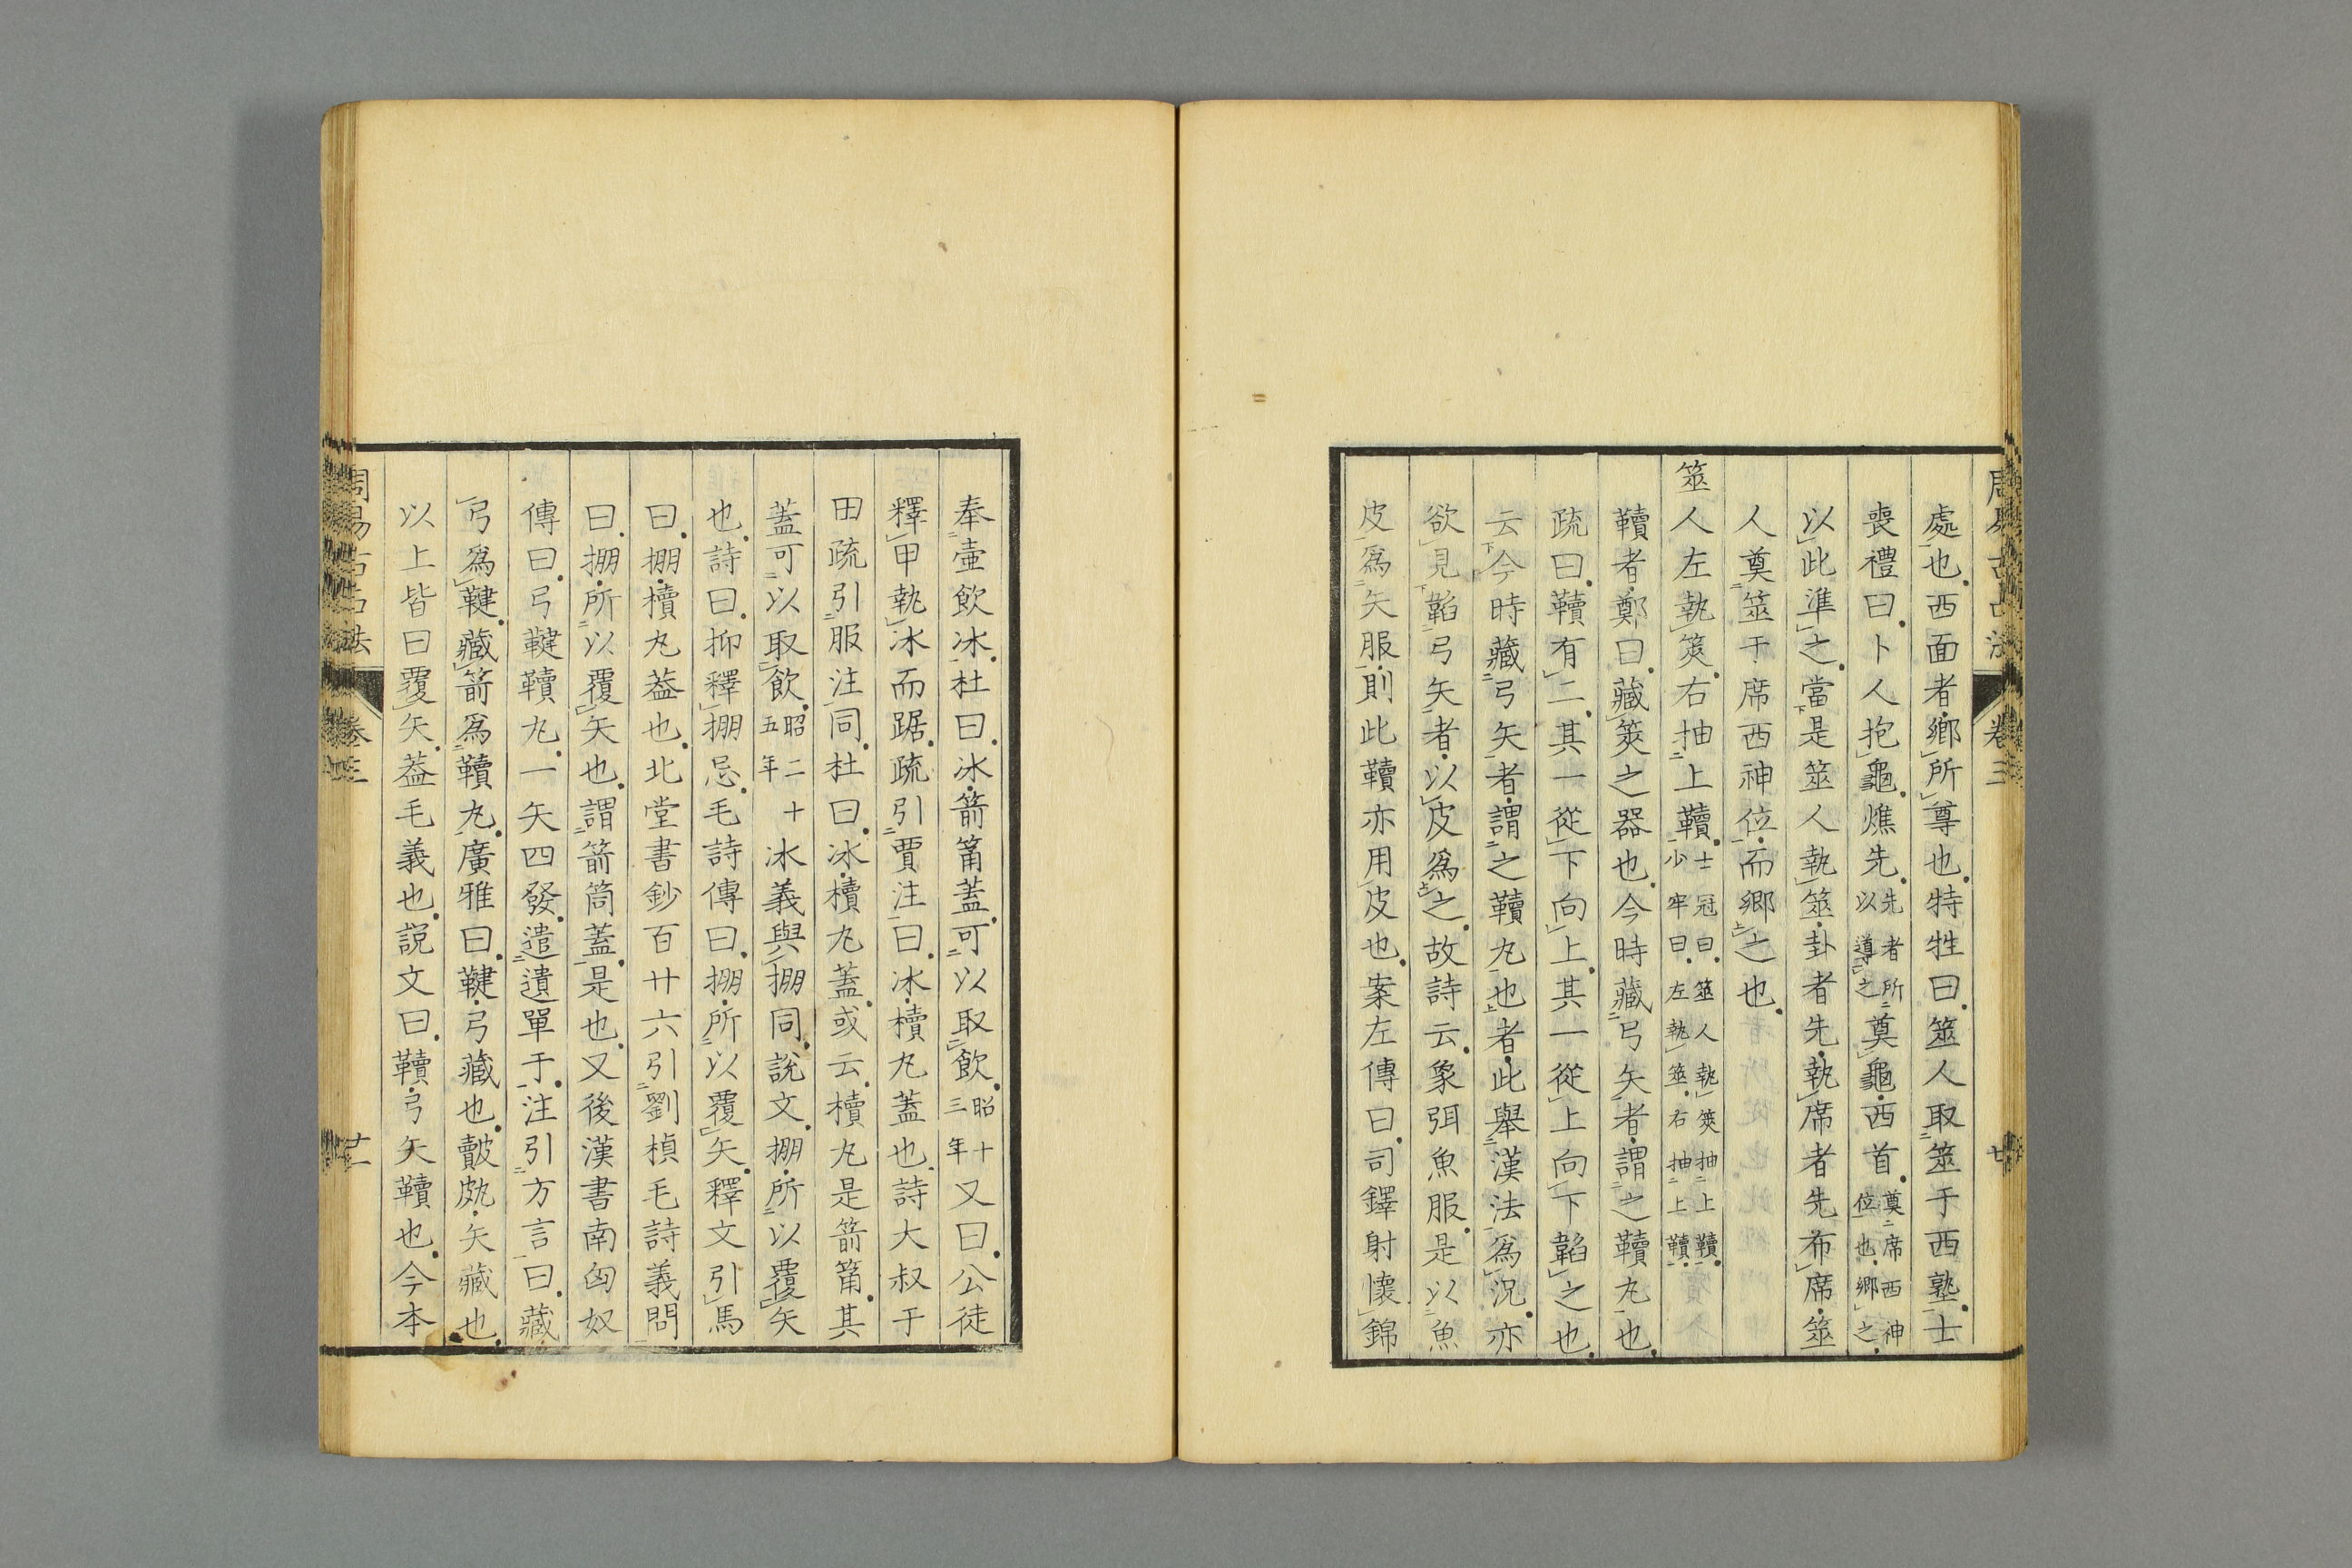 處也西面者鄉所尊也特牲曰筮人取筮于西塾士
喪禮曰卜人抱龜燋先先者所以導之奠龜西首奠席西神位也鄉之
以此準之當是筮人執筮卦者先執席者先布席筮
人奠筮于席西神位而鄉之也
筮人左執筴右抽上韇士冠曰筮人執筴抽上韇少牢曰左執筮右抽上韇
韇者鄭曰藏筴之器也今時藏弓矢者謂之韇丸也
疏曰韇有二其一從下向上其一從上向下韜之也
云今時藏弓矢者謂之韇丸也者此舉漢法爲況亦
欲見韜弓矢者以皮爲之故詩云象弭魚服是以魚
皮爲矢服則此韇亦用皮也案左傳曰司鐸射懷錦
卷三
奉壷飲冰杜曰冰箭筩蓋可以取飲昭十三年又曰公徒
釋甲執冰而踞疏引賈注曰冰櫝丸蓋也詩大叔于
田疏引服注同杜曰冰櫝丸蓋或云櫝丸是箭筩其
蓋可以取飲昭二十五年冰義與掤同說文掤所以覆矢
也詩曰抑釋掤忌毛詩傳曰掤所以覆矢釋文引馬
曰掤櫝丸葢也北堂書鈔百廿六引劉楨毛詩義問
曰掤所以覆矢也謂箭筒蓋是也又後漢書南匈奴
傳曰弓鞬韇丸一矢四發遣遺單于注引方言曰藏
弓爲鞬藏箭爲韇丸廣雅曰鞬弓藏也㱿㱩矢藏也
以上皆曰覆矢葢毛義也說文曰韇弓矢韇也今本
周易古占法
卷三
廿一